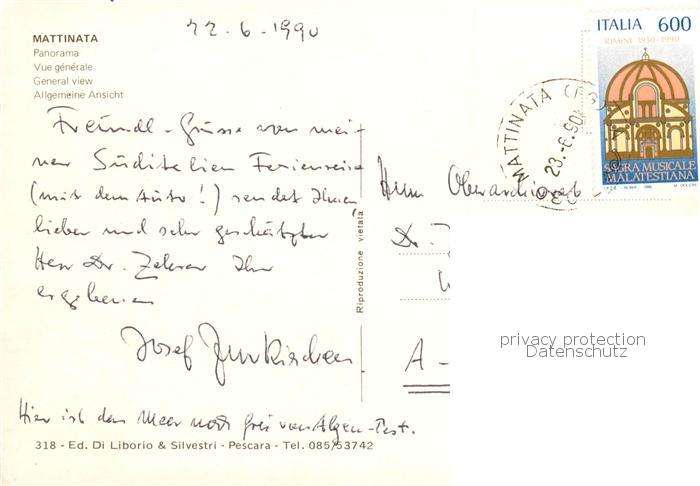 22.6.1990
MATTINATA
Panorama
Vue générale
General view
Allgemeine Ansicht
ITALIA 600
RIMINI 1950-1990
SAGRA MUSICALE
MALATESTIANA
I.P.Z.S. - ROMA - 1990
MATTINATA (FG)
23.-6.90
Freundl. Grüsse von mei-
ner Süditalien Ferienreise
(mit dem Auto!) sendet Ihnen,
lieber und sehr geschätzter
Herr Dr. Ihr
ergebener
Josef
Herrn Oberarchivrat
Dr.
A -
Riproduzione vietata
privacy protection
Datenschutz
Hier ist das Meer noch frei von Algen-Pest.
318 - Ed. Di Liborio & Silvestri - Pescara - Tel. 085/53742